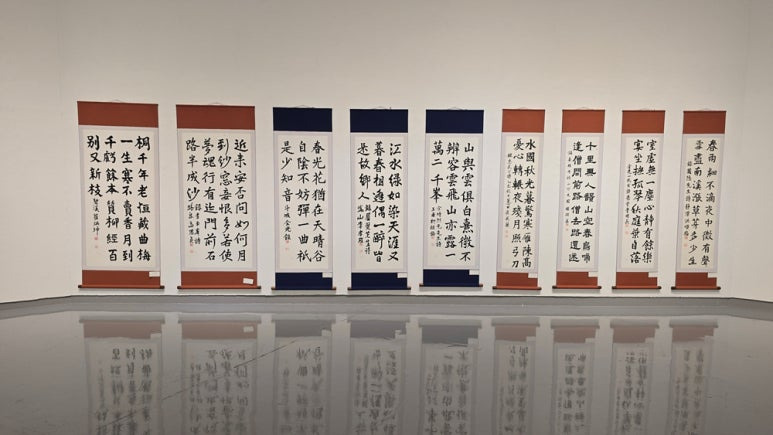 春雨細不滴夜中微有聲
雪盡南溪漲草芽多少生
室虛無一塵心靜有餘樂
宴坐撫孤琴秋庭葉自落
十里無人語山空春鳥啼
逢僧問前路僧去路還迷
水國秋光暮驚寒雁陳高
憂心轉輾夜殘月照弓刀
山與雲俱白熹微不
辨容雲飛山亦露一
萬二千峯
江水綠如染天涯又
暮春相逢偶一醉皆
是故鄉人
春光花猶在天晴谷
自陰不妨彈一曲祇
是少知音
近來安否問如何月
到紗窓妾恨多若使
夢魂行有迹門前石
路半成沙
桐千年老恒藏曲梅
一生寒不賣香月到
千虧餘本質柳經百
別又新枝